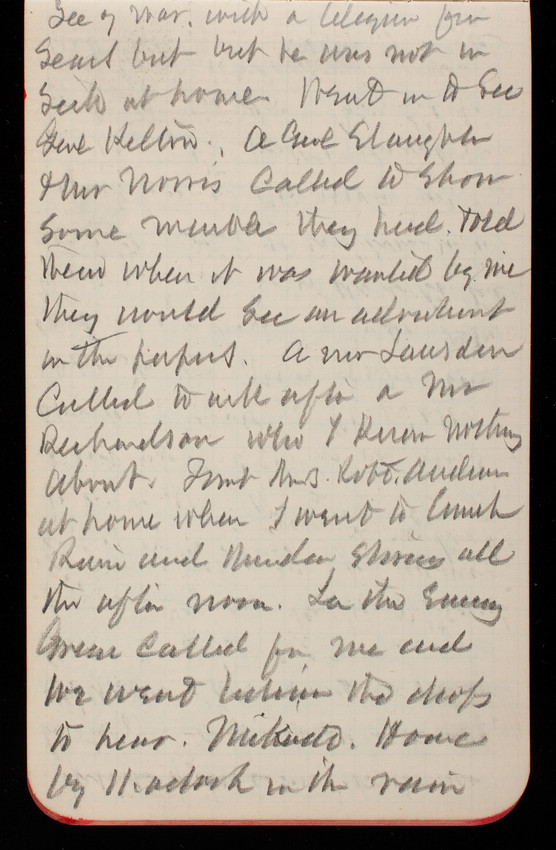 Sec of War. with a telegram for
but but he was not in
at home Went in to see
Genl Kelton. A Genl Slaughter
& Mr Norris Called to show
some marble they had. Told
them when it was wanted by me
they would see an advertisment
in the papers. A Mr
Called to ask after a Mr
Richardson who I know nothing
about. Found Mrs. Robt. Andrews
at home when I went to lunch
Rain and Thunder Storm all
the after noon. In the Evening
Green Called for me and
We went behind the
to hear. Mikado. Home
by 11. oclock in the rain